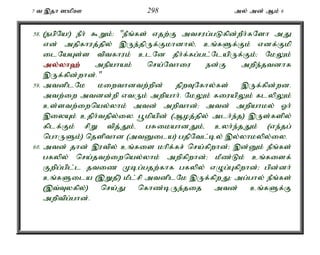 7 வ இதா ஸமிஊ 298 அல் அன் ஆம் 6
58. (நபியே) நீர் கூறும்: "நீங்கள் எதற்கு அவசரப்படுகின்றீர்களோ அது
என் அதிகாரத்தில் இருந்திருக்குமானால், உங்களுக்கும் எனக்குமி
டையேயுள்ள விவகாரம் உடனே தீர்க்கப்பட்டேயிருக்கும்; மேலும்
அல்லாஹ் அநியாயம் செய்வோரை நன்கு அறிந்தவனாக
இருக்கின்றான்."
59. அவனிடமே மறைவானவற்றின் திறவுகோல்கள் இருக்கின்றன.
அவற்றை அவனன்றி எவரும் அறியார். மேலும் கரையிலும் கடலிலும்
உள்ளவற்றையெல்லாம் அவன் அறிவான்; அவன் அறியாமல் ஓர்
இலையும் உதிர்வதில்லை. பூமியின் (ஆழத்தில் அடர்ந்த) இருள்களில்
கிடக்கும் சிறு வித்தும், பசுமையானதும், உலர்ந்ததும் (எந்தப்
பொருளும்) தெளிவான (அவனுடைய) பதிவேட்டில் இல்லாமலில்லை.
60. அவன் தான் இரவில் உங்களை மரிக்கச் செய்கிறான்; இன்னும் நீங்கள்
பகலில் செய்தவற்றையெல்லாம் அறிகிறான்; மீண்டும் உங்களைக்
குறிப்பிட்ட தவணை முடிப்பதற்காக பகலில் எழுப்புகிறான்; பின்னர்
உங்களுடைய (இறுதி) மீட்சி அவனிடமே இருக்கிறது; அப்பால் நீங்கள்
(இவ்வுலகில்) செய்து கொண்டிருந்ததை அவன் உங்களுக்கு
அறிவிப்பான்.